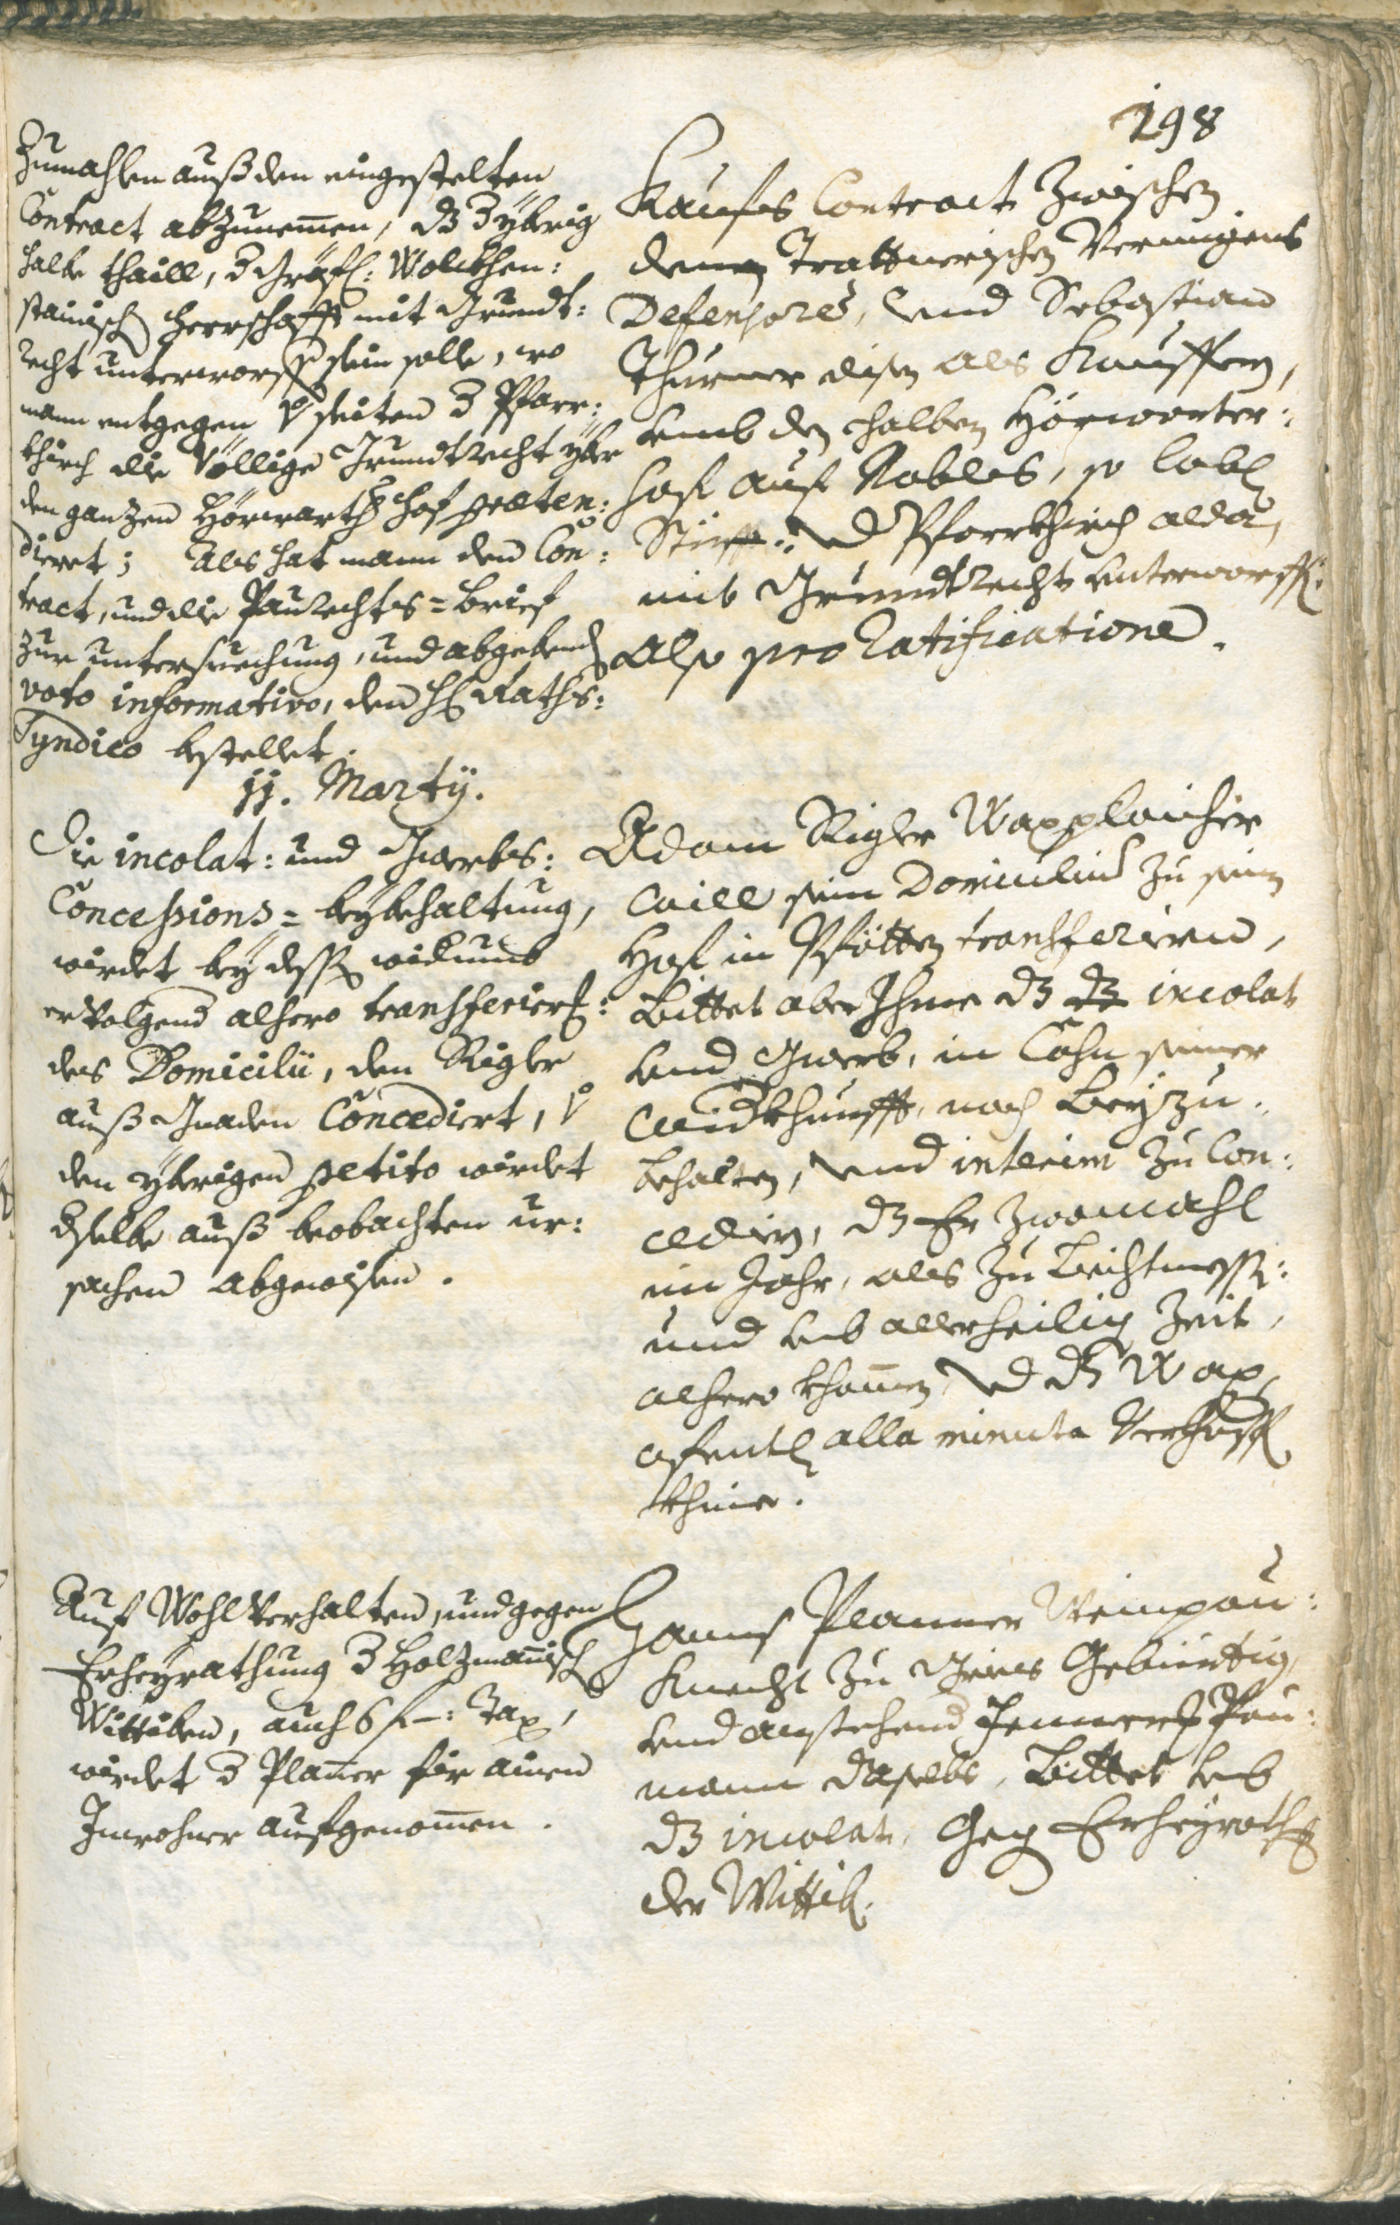 198
Zumahlen auß den eingestelten
Contract abzunemen, dz d ybrig
halbe thaill, d Gräfl: Wolckhen:
stainisch Herrschafft mit Grundt:
recht unterworffen sein solle, wo
mann entgegen seiten d Pfarr:
khirch die Völlige Grundtrecht yber
den ganzen Hörwarth hof praeten:
diert; Als hat mann den Con:
tract, und die Paurechts=brief
zur untersuechung, und abgebend
voto informativo, den H Raths:
Syndico bestellet.
Kaufs Contract zwischen
denen Trattnerischen Vermigens
Defensores, und Sebastian
Thurner disen als Kauffern,
umb den halben Hörworter:
hof auf Nobles, so lobl
Stüfft: und Pfarrkhirch alda,
mit Grundtrecht unterworffen.
Also pro ratificatione.
11. Marty.
Die incolat: und Gwerbs:
Concessions=beybehaltung,
wirdet bey dessen widrumb
ervolgend alhero transferier:
des Domicilii, den Rigler
auß Gnaden Concediert,
den ybrigen petito wirdet
dselbe auß beobachten ur:
sachen abgewisen.
Adam Rigler Waxplaicher
will sein Domicilium zu sein
Hof in Pfatten transferiern,
Bittet aber Ihme dz dz incolat
und Gwerb, in Cahsu seiner
widkhunfft, noch beyzu:
behalten, und interim zu Con:
cediern, dz Er zwaymahl
im Jahr, als zu Liechtmessen:
und umb allerheilig Zeit,
alhero khomen, und dz Wax
ofentl alla minuta Verkhauffen
khine.
Auf Wohl Verhalten, und gegen
Erheyrathung d Holzmanisch
Wittiben, auch 6 f –: Tax,
wirdet d Planer für ainen
Inwohner aufgenomen.
Hanns Planner Weinpau:
Knecht zu Gries Gebürtig,
und anstehend Pau:
mann daselbs, Bittet umb
dz incolat, Gegen Erheyrathg
der Wittib.